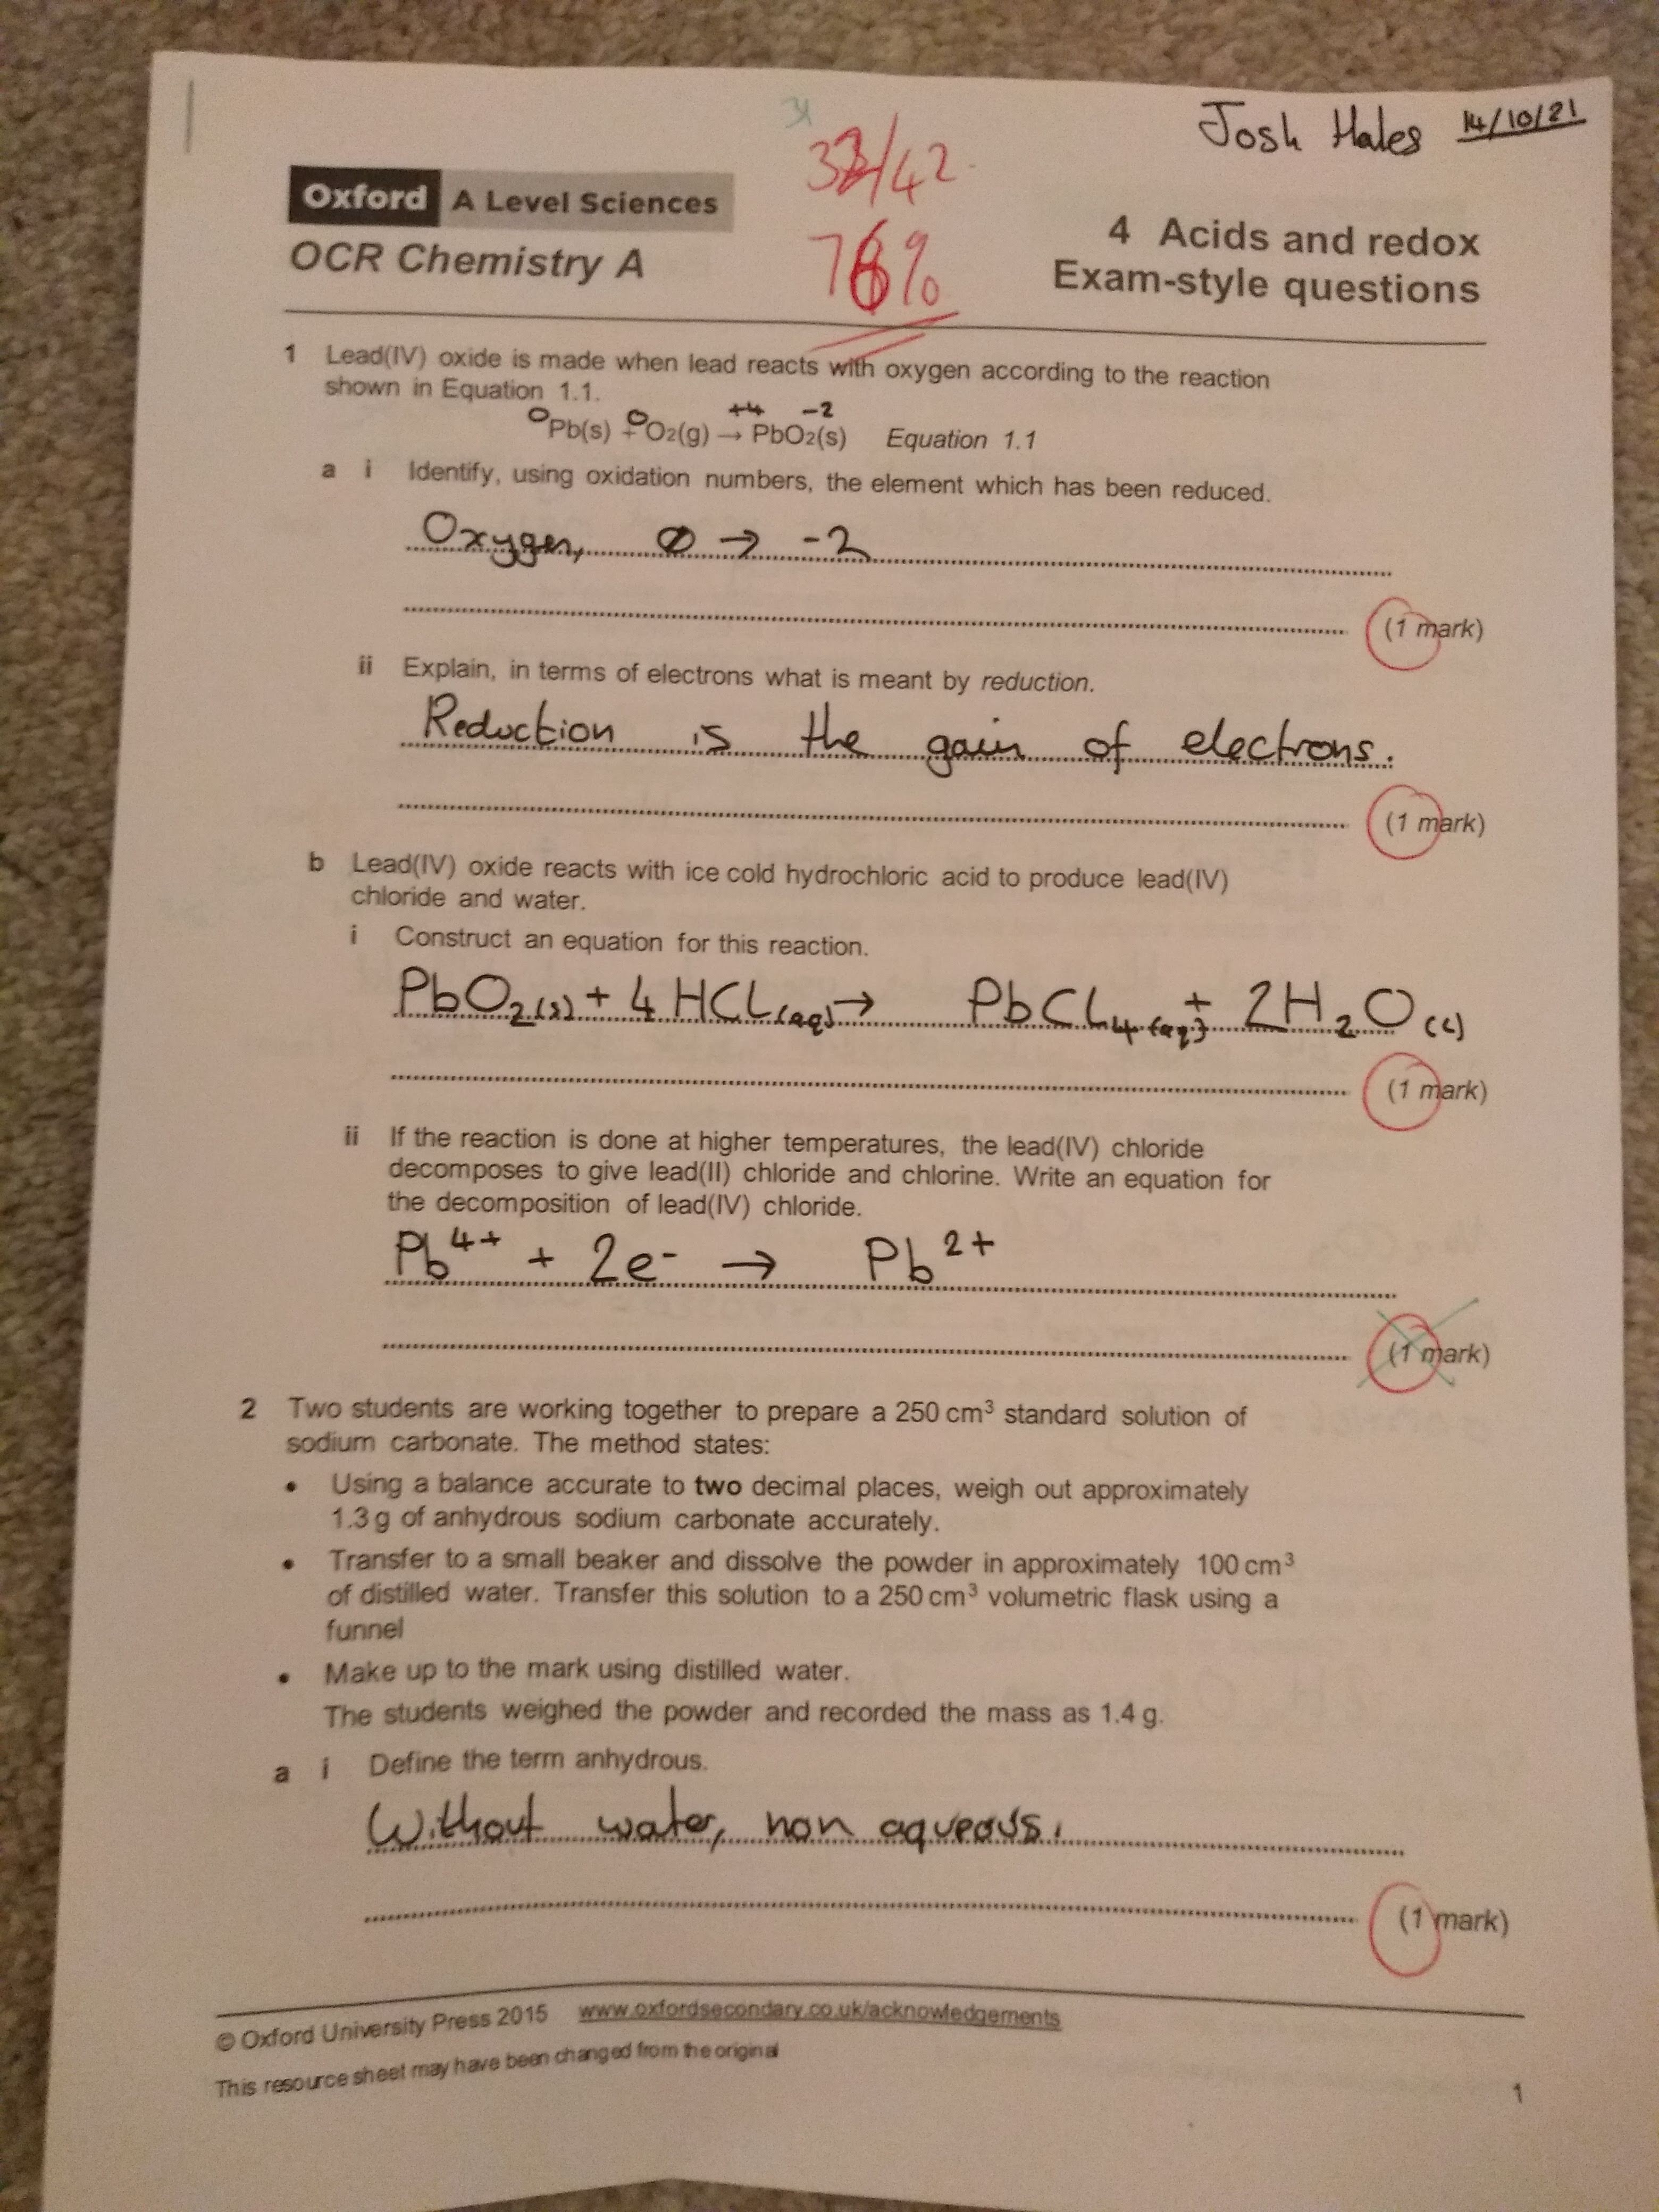 Josh Hales 14/10/21
31
/42
Oxford A Level Sciences
OCR Chemistry A
%
4 Acids and redox
Exam-style questions
1 Lead(IV) oxide is made when lead reacts with oxygen according to the reaction
shown in Equation 1.1.
0 0 +4 -2
Pb(s) + O₂(g) → PbO₂(s) Equation 1.1
a i Identify, using oxidation numbers, the element which has been reduced.
Oxygen, 0 → -2
(1 mark)
ii Explain, in terms of electrons what is meant by reduction.
Reduction is the gain of electrons.
(1 mark)
b Lead(IV) oxide reacts with ice cold hydrochloric acid to produce lead(IV)
chloride and water.
i Construct an equation for this reaction.
PbO₂(s) + 4HCl(aq) → PbCl₄(aq) + 2H₂O(l)
(1 mark)
ii If the reaction is done at higher temperatures, the lead(IV) chloride
decomposes to give lead(II) chloride and chlorine. Write an equation for
the decomposition of lead(IV) chloride.
Pb⁴⁺ + 2e⁻ → Pb²⁺
(1 mark)
2 Two students are working together to prepare a 250 cm³ standard solution of
sodium carbonate. The method states:
• Using a balance accurate to two decimal places, weigh out approximately
1.3 g of anhydrous sodium carbonate accurately.
• Transfer to a small beaker and dissolve the powder in approximately 100 cm³
of distilled water. Transfer this solution to a 250 cm³ volumetric flask using a
funnel
• Make up to the mark using distilled water.
The students weighed the powder and recorded the mass as 1.4 g.
a i Define the term anhydrous.
Without water, non aqueous.
(1 mark)
© Oxford University Press 2015 www.oxfordsecondary.co.uk/acknowledgements
This resource sheet may have been changed from the original
1